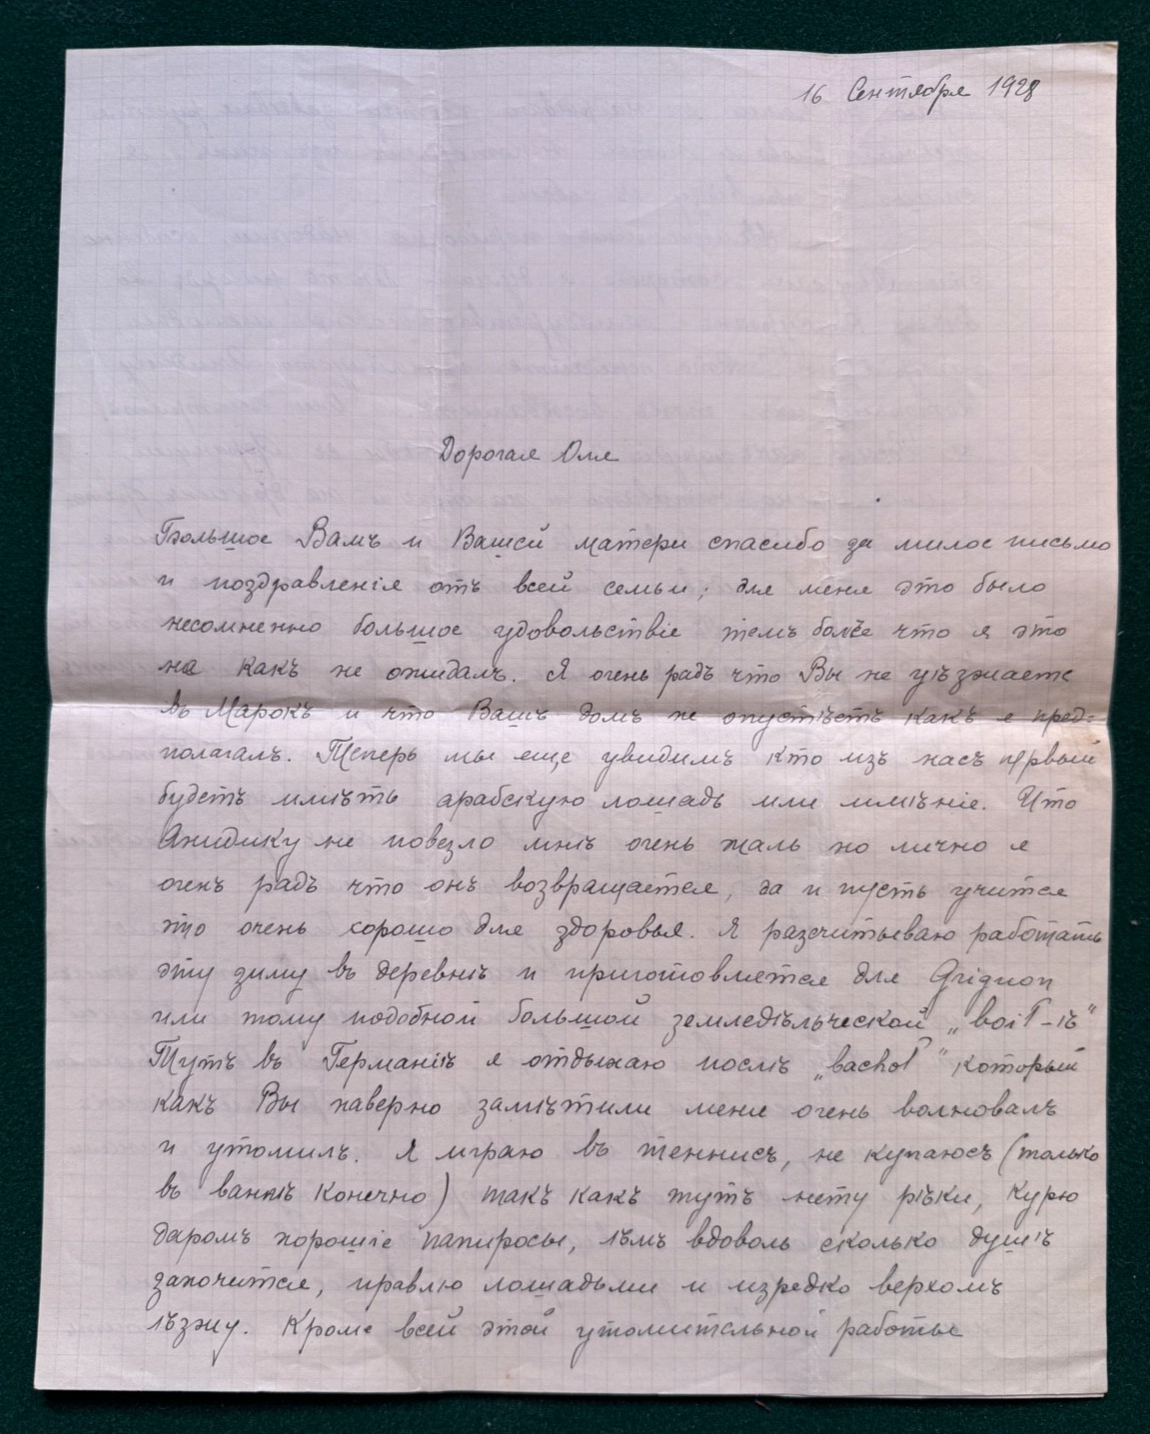 16 Сентября 1928
Дорогая Оля
Большое Вамъ и Вашей матери спасибо за милое письмо
и поздравленія отъ всей семьи; для меня это было
несомненно большое удовольствіе темъ болѣе что я это
на какъ не ожидалъ. Я очень радъ что Вы не уѣзжаете
въ Марокъ и что Вашъ домъ не опустѣетъ какъ я пред-
полагалъ. Теперь мы еще увидимъ кто изъ насъ первый
будетъ имѣть арабскую лошадь или имѣніе. Что
не повезло мнѣ очень жаль но лично я
очень радъ что онъ возвращается, да и пусть учится
это очень хорошо для здоровья. Я разсчитываю работать
эту зиму въ деревнѣ и приготовлятся для Grignon
или тому подобной большой земледѣльческой „boît-ѣ“
Тутъ въ Германіѣ я отдыхаю послѣ „bachot“ который
какъ Вы наверно замѣтили меня очень волновалъ
и утомилъ. Я играю въ теннисъ, не купаюсъ (только
въ ваннѣ конечно) такъ какъ тутъ нету рѣки, курю
даромъ хорошіе папиросы, ѣмъ вдоволь сколько душѣ
захочится, правлю лошадьми и изредко верхомъ
ѣзжу. Кроме всей этой утомительной работы